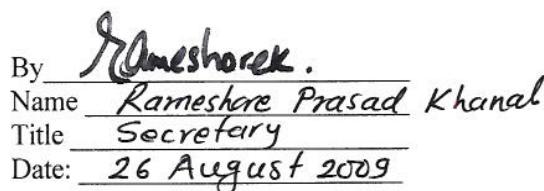 By Rameshorek.
Name Rameshore Prasad Khanal
Title Secretary
Date: 26 August 2009